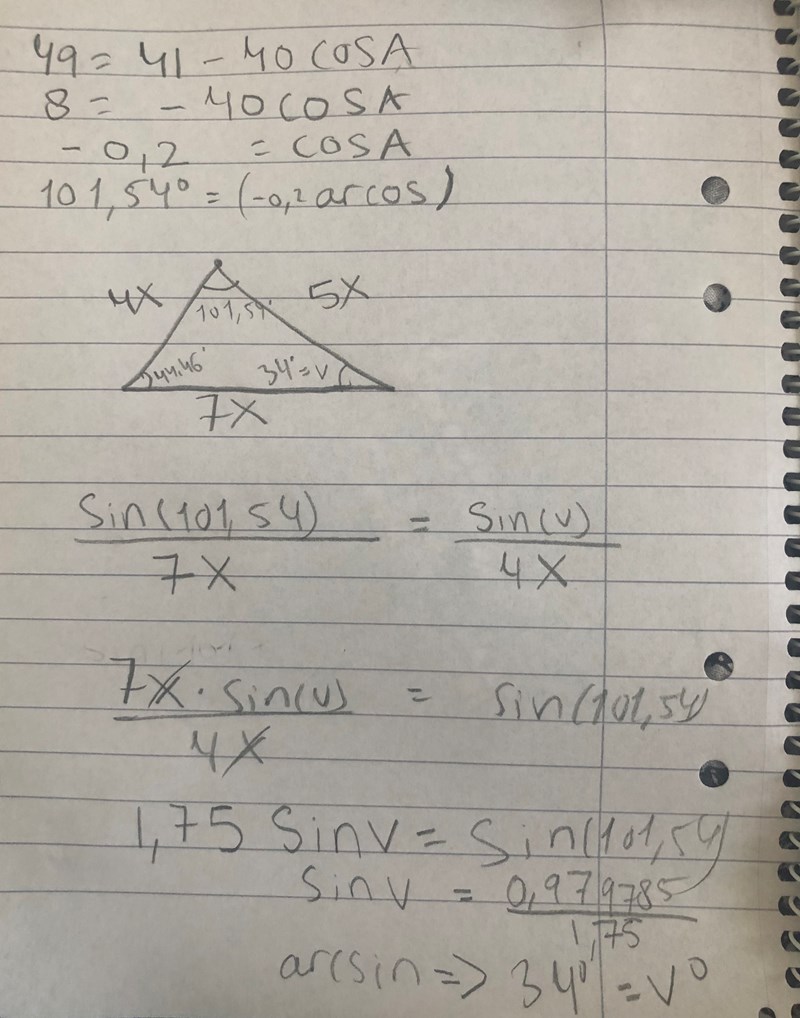 49 = 41 - 40 COSA
8 = - 40 COSA
- 0,2 = COSA
101,54° = (-0,2 arcos)
4X 5X
101,54°
44.46° 34° = v
7X
Sin(101,54) = Sin(v)
7X 4X
7X · Sin(v) = Sin(101,54)
4X
1,75 Sinv = Sin(101,54)
Sinv = 0,979785
1,75
arcsin => 34° = v°